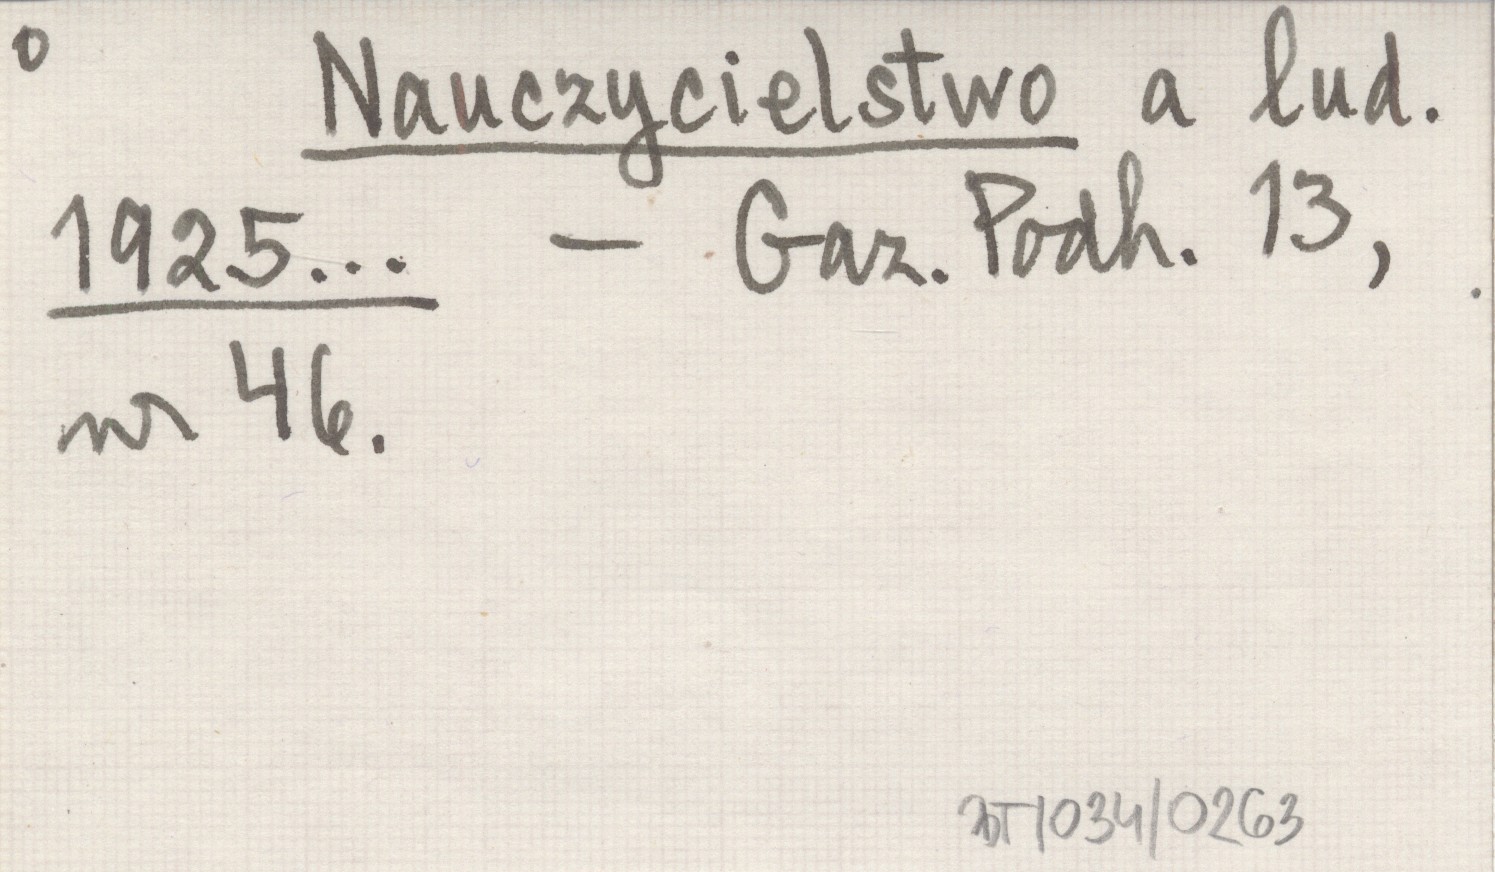 o
Nauczycielstwo a lud.
1925... – Gaz. Podh. 13,
nr 46.
034/0263